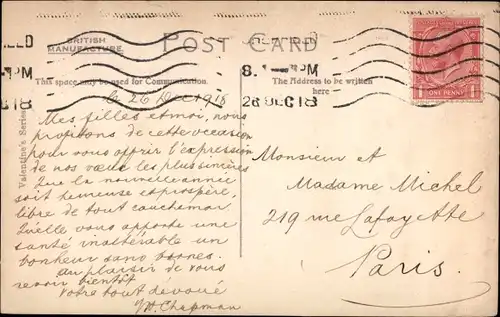 BRITISH
MANUFACTURE.
POST CARD
This space may be used for Communication.
The Address to be written
here
8. PM
26 DEC 18
ONE PENNY
Valentine's Series
Le 26 Dec 1918
Mes filles et moi, nous
profitons de cette occasion
pour vous offrir l'expression
de nos vœux les plus sincères
Que la nouvelle année
soit heureuse et prospère
libre de tout cauchemar
Qu'elle vous apporte une
santé inaltérable un
bonheur sans bornes.
au plaisir de vous
revoir bientôt
Votre tout dévoué
Chapman
Monsieur et
Madame Michel
219 rue Lafayette
Paris.